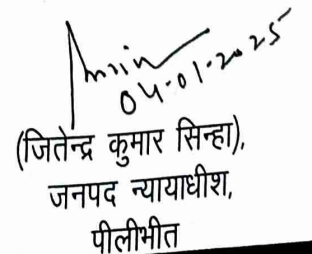 04-01-2025
(जितेन्द्र कुमार सिन्हा),
जनपद न्यायाधीश,
पीलीभीत